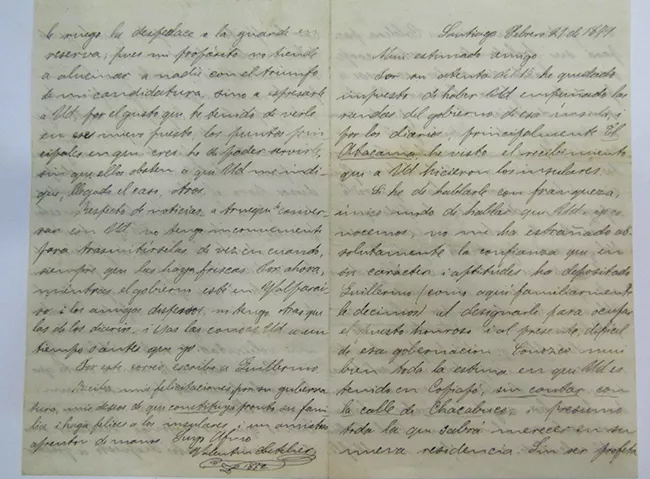 Santiago, Febrero 21 de 1891.
Mui estimado amigo:
Por su atenta del he quedado
impuesto de haber Ud empuñado las
riendas del gobierno de esa ínsula, i
por los diarios, principalmente El
Atacama he visto el recibimiento
que a Ud hicieron los insulares.
Si he de hablarle con franqueza,
único modo de hablar que Ud. i yo co-
nocemos, no me ha estrañado ab-
solutamente la confianza que en
su carácter i aptitudes ha depositado
Guillermo (como aquí familiarmente
le decimos) al designarlo para ocupar
el puesto honroso i al presente difícil
de esa gobernacion. Conozco mui
bien toda la estima en que Ud es
tenido en Copiapó, sin contar con
la calle de Chacabuco, i presumo
toda la que sabrá merecer en su
nueva residencia. Sin ser profeta
le ruego la despedace o la guarde en
reserva; pues mi propósito no tiende
a alucinar a nadie con el triunfo
de mi candidatura, sino a espresarle
a Ud. por el gusto que he tenido de verle
en ese nuevo puesto, los puntos prin-
cipales en que creo he de poder servirle,
sin que ellos obsten a que Ud me indi-
que, llegado el caso, otros.
Respecto de noticias, o conver-
sar con Ud no tengo inconveniente
para trasmitírselas de vez en cuando,
siempre que las haya frescas. Por ahora,
miéntras el gobierno esté en Valparai-
so i los amigos dispersos, no tengo otras que
las de los diarios, i esas las conoce Ud a un
tiempo o ántes que yo.
Por este correo escribo a Guillermo.
Reciba mis felicitaciones por su goberna-
tura, mis deseos de que constituya pronto su fami-
lia i haga felices a los insulares i un amistoso
apreton de manos. Suyo Afmo
Valentin Letelier